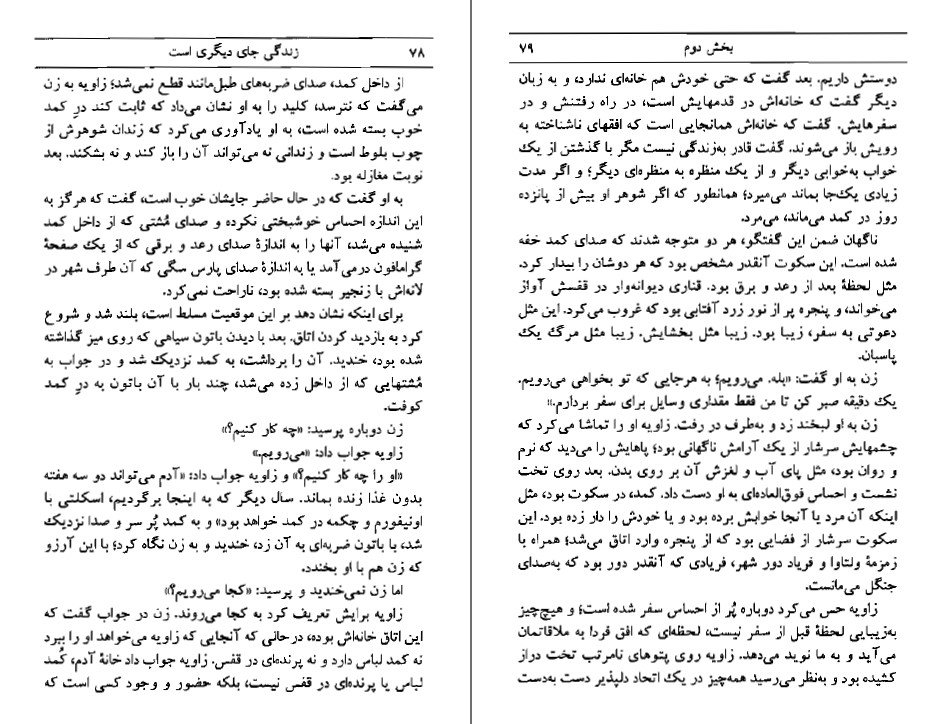 زندگی جای دیگری است
۷۸
از داخل کمد، صدای ضربه‌های طبل‌مانند قطع نمی‌شد؛ زاویه به زن
می‌گفت که نترسد، کلید را به او نشان می‌داد که ثابت کند درِ کمد
خوب بسته شده است، به او یادآوری می‌کرد که زندان شوهرش از
چوب بلوط است و زندانی نه می‌تواند آن را باز کند و نه بشکند. بعد
نوبت مغازله بود.
به او گفت که در حال حاضر جایشان خوب است، گفت که هرگز به
این اندازه احساس خوشبختی نکرده و صدای مُشتی که از داخل کمد
شنیده می‌شد، آنها را به اندازهٔ صدای رعد و برقی که از یک صفحهٔ
گرامافون درمی‌آمد یا به اندازهٔ صدای پارس سگی که آن طرف شهر در
لانه‌اش با زنجیر بسته شده بود، ناراحت نمی‌کرد.
برای اینکه نشان دهد بر این موقعیت مسلط است، بلند شد و شروع
کرد به بازدید کردن اتاق. بعد با دیدن باتون سیاهی که روی میز گذاشته
شده بود، خندید. آن را برداشت، به کمد نزدیک شد و در جواب به
مُشتهایی که از داخل زده می‌شد، چند بار با آن باتون به درِ کمد
کوفت.
زن دوباره پرسید: «چه کار کنیم؟»
زاویه جواب داد: «می‌رویم.»
«او را چه کار کنیم؟» و زاویه جواب داد: «آدم می‌تواند دو سه هفته
بدون غذا زنده بماند. سال دیگر که به اینجا برگردیم، اسکلتی با
اونیفورم و چکمه در کمد خواهد بود» و به کمد پُر سر و صدا نزدیک
شد، با باتون ضربه‌ای به آن زد، خندید و به زن نگاه کرد؛ با این آرزو
که زن هم با او بخندد.
اما زن نمی‌خندید و پرسید: «کجا می‌رویم؟»
زاویه برایش تعریف کرد به کجا می‌روند. زن در جواب گفت که
این اتاق خانه‌اش بوده، درحالی که آنجایی که زاویه می‌خواهد او را ببرد
نه کمد لباس دارد و نه پرنده‌ای در قفس. زاویه جواب داد خانهٔ آدم، کُمد
لباس یا پرنده‌ای در قفس نیست، بلکه حضور و وجود کسی است که
بخش دوم
۷۹
دوستش داریم. بعد گفت که حتی خودش هم خانه‌ای ندارد، و به زبان
دیگر گفت که خانه‌اش در قدمهایش است، در راه رفتنش و در
سفرهایش. گفت که خانه‌اش همانجایی است که افقهای ناشناخته به
رویش باز می‌شوند. گفت قادر به‌زندگی نیست مگر با گذشتن از یک
خواب به‌خوابی دیگر و از یک منظره به منظره‌ای دیگر؛ و اگر مدت
زیادی یک‌جا بماند می‌میرد؛ همانطور که اگر شوهر او بیش از پانزده
روز در کمد می‌ماند، می‌مرد.
ناگهان ضمن این گفتگو، هر دو متوجه شدند که صدای کمد خفه
شده است. این سکوت آنقدر مشخص بود که هر دوشان را بیدار کرد.
مثل لحظهٔ بعد از رعد و برق بود. قناری دیوانه‌وار در قفسش آواز
می‌خواند، و پنجره پر از نور زرد آفتابی بود که غروب می‌کرد. این مثل
دعوتی به سفر، زیبا بود. زیبا مثل بخشایش. زیبا مثل مرگ یک
پاسبان.
زن به او گفت: «بله. می‌رویم؛ به هرجایی که تو بخواهی می‌رویم.
یک دقیقه صبر کن تا من فقط مقداری وسایل برای سفر بردارم.»
زن به او لبخند زد و به‌طرف در رفت. زاویه او را تماشا می‌کرد که
چشمهایش سرشار از یک آرامش ناگهانی بود؛ پاهایش را می‌دید که نرم
و روان بود، مثل پای آب و لغزش آن بر روی بدن. بعد روی تخت
نشست و احساس فوق‌العاده‌ای به او دست داد. کمد، در سکوت بود، مثل
اینکه آن مرد یا آنجا خوابش برده بود و یا خودش را دار زده بود. این
سکوت سرشار از فضایی بود که از پنجره وارد اتاق می‌شد؛ همراه با
زمزمهٔ ولتاوا و فریاد دور شهر، فریادی که آنقدر دور بود که به‌صدای
جنگل می‌مانست.
زاویه حس می‌کرد دوباره پُر از احساس سفر شده است؛ و هیچ‌چیز
به‌زیبایی لحظهٔ قبل از سفر نیست، لحظه‌ای که افق فردا به ملاقاتمان
می‌آید و به ما نوید می‌دهد. زاویه روی پتوهای نامرتب تخت دراز
کشیده بود و به‌نظر می‌رسید همه‌چیز در یک اتحاد دلپذیر دست به‌دست